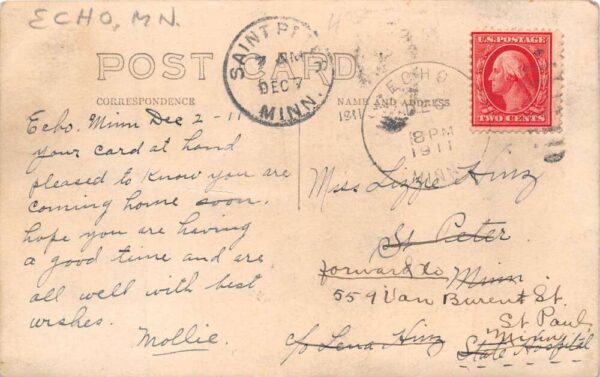 ECHO, MN.
POST CARD
CORRESPONDENCE
NAME AND ADDRESS
SAINT PETER
7 AM
DEC 7
MINN.
1911
ECHO
8 PM
1911
MINN
U.S. POSTAGE
TWO CENTS
Echo, Minn Dec 2-11
your card at hand
pleased to know you are
coming home soon.
hope you are having
a good time and are
all well with best
wishes.
Mollie.
Miss Lizzie Hinz
St Peter
forward to Minn
559 Van Burent St.
St Paul
Minn
c/o Lena Hinz State Hospital